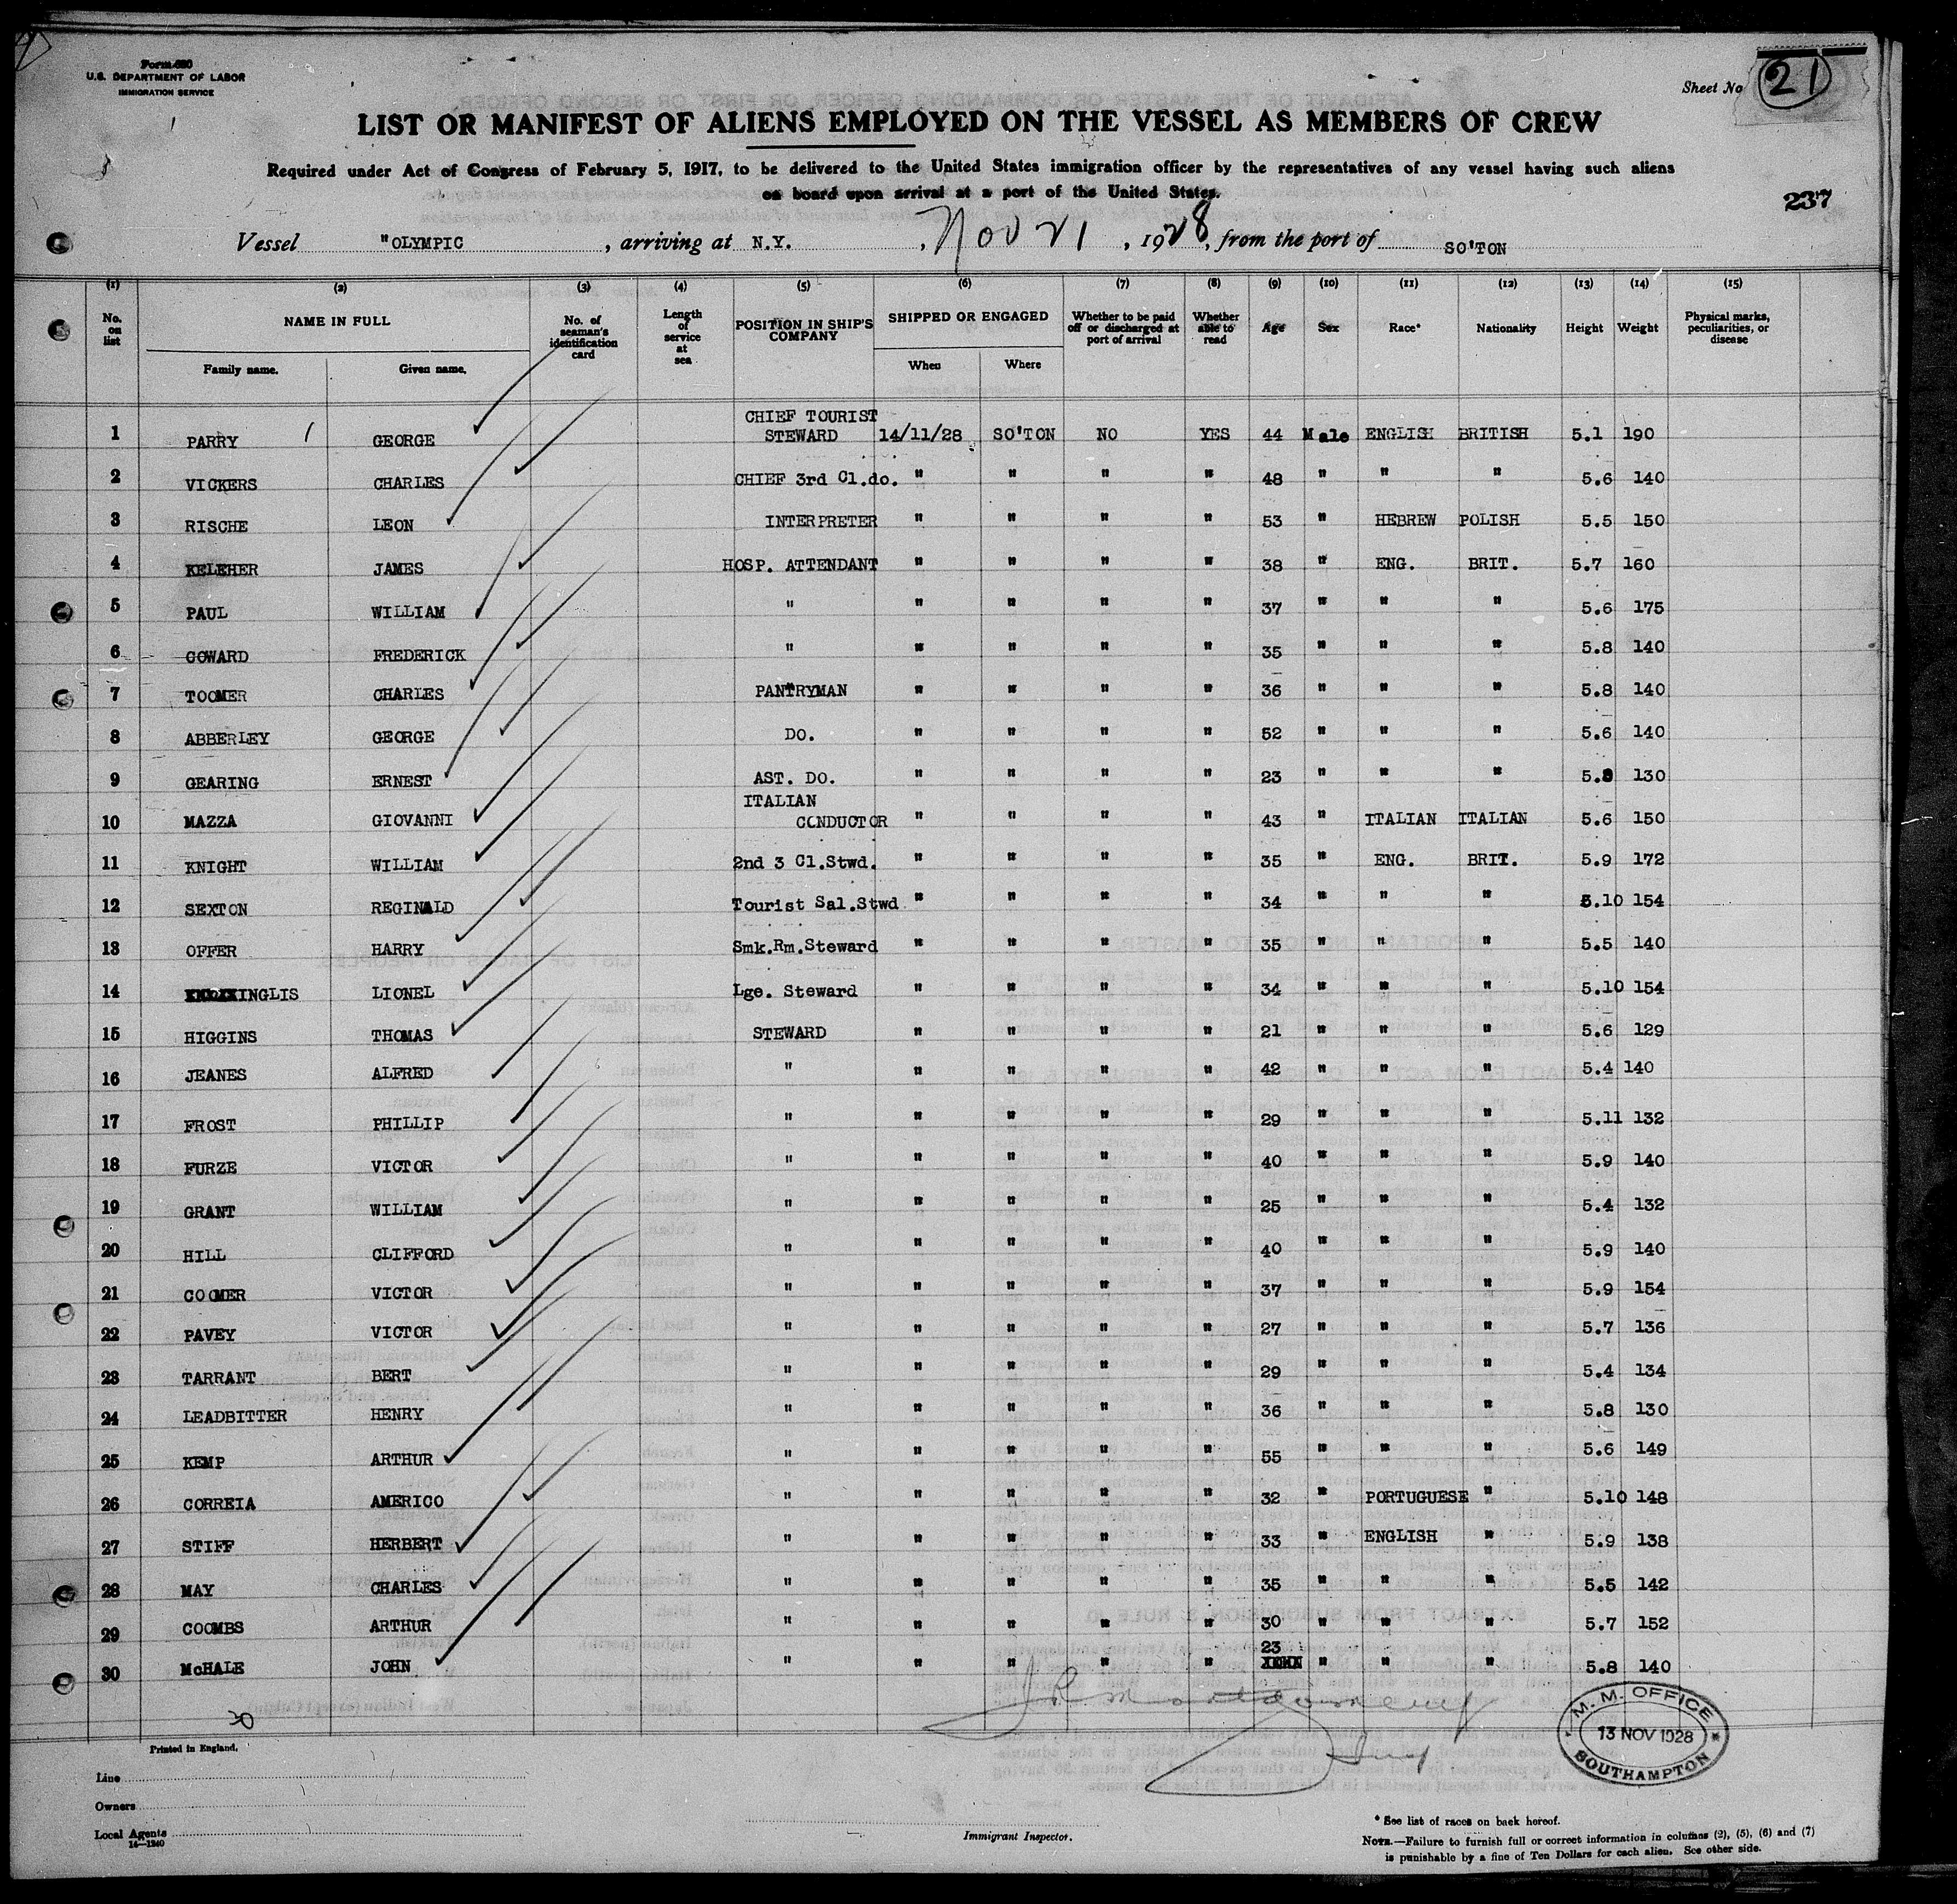 Form 680
U.S. DEPARTMENT OF LABOR
IMMIGRATION SERVICE
Sheet No 21
LIST OR MANIFEST OF ALIENS EMPLOYED ON THE VESSEL AS MEMBERS OF CREW
Required under Act of Congress of February 5, 1917, to be delivered to the United States immigration officer by the representatives of any vessel having such aliens
on board upon arrival at a port of the United States.
237
Vessel "OLYMPIC , arriving at N.Y. , Nov 21 , 1928, from the port of SO'TON
(1) (2) (3) (4) (5) (6) (7) (8) (9) (10) (11) (12) (13) (14) (15)
No. on list NAME IN FULL Family name. Given name. No. of seaman's identification card Length of service at sea POSITION IN SHIP'S COMPANY SHIPPED OR ENGAGED When Where Whether to be paid off or discharged at port of arrival Whether able to read Age Sex Race* Nationality Height Weight Physical marks, peculiarities, or disease
1 PARRY GEORGE CHIEF TOURIST STEWARD 14/11/28 SO'TON NO YES 44 Male ENGLISH BRITISH 5.1 190
2 VICKERS CHARLES CHIEF 3rd Cl.do. " " " " 48 " " " 5.6 140
3 RISCHE LEON INTERPRETER " " " " 53 " HEBREW POLISH 5.5 150
4 KELEHER JAMES HOSP. ATTENDANT " " " " 38 " ENG. BRIT. 5.7 160
5 PAUL WILLIAM " " " " " 37 " " " 5.6 175
6 COWARD FREDERICK " " " " " 35 " " " 5.8 140
7 TOOMER CHARLES PANTRYMAN " " " " 36 " " " 5.8 140
8 ABBERLEY GEORGE DO. " " " " 52 " " " 5.6 140
9 GEARING ERNEST AST. DO. " " " " 23 " " " 5.8 130
10 MAZZA GIOVANNI ITALIAN CONDUCTOR " " " " 43 " ITALIAN ITALIAN 5.6 150
11 KNIGHT WILLIAM 2nd 3 Cl.Stwd. " " " " 35 " ENG. BRIT. 5.9 172
12 SEXTON REGINALD Tourist Sal.Stwd " " " " 34 " " " 5.10 154
13 OFFER HARRY Smk.Rm.Steward " " " " 35 " " " 5.5 140
14 INGLIS LIONEL Lge. Steward " " " " 34 " " " 5.10 154
15 HIGGINS THOMAS STEWARD " " " " 21 " " " 5.6 129
16 JEANES ALFRED " " " " " 42 " " " 5.4 140
17 FROST PHILLIP " " " " " 29 " " " 5.11 132
18 FURZE VICTOR " " " " " 40 " " " 5.9 140
19 GRANT WILLIAM " " " " " 25 " " " 5.4 132
20 HILL CLIFFORD " " " " " 40 " " " 5.9 140
21 COOMER VICTOR " " " " " 37 " " " 5.9 154
22 PAVEY VICTOR " " " " " 27 " " " 5.7 136
23 TARRANT BERT " " " " " 29 " " " 5.4 134
24 LEADBITTER HENRY " " " " " 36 " " " 5.8 130
25 KEMP ARTHUR " " " " " 55 " " " 5.6 149
26 CORREIA AMERICO " " " " " 32 " PORTUGUESE " 5.10 148
27 STIFF HERBERT " " " " " 33 " ENGLISH " 5.9 138
28 MAY CHARLES " " " " " 35 " " " 5.5 142
29 COOMBS ARTHUR " " " " " 30 " " " 5.7 152
30 McHALE JOHN " " " " " 23 " " " 5.8 140
30
M. M. OFFICE
13 NOV 1928
SOUTHAMPTON
Printed in England.
Line
Owners
Local Agents
14—1240
Immigrant Inspector.
* See list of races on back hereof.
NOTE.—Failure to furnish full or correct information in columns (2), (5), (6) and (7)
is punishable by a fine of Ten Dollars for each alien. See other side.